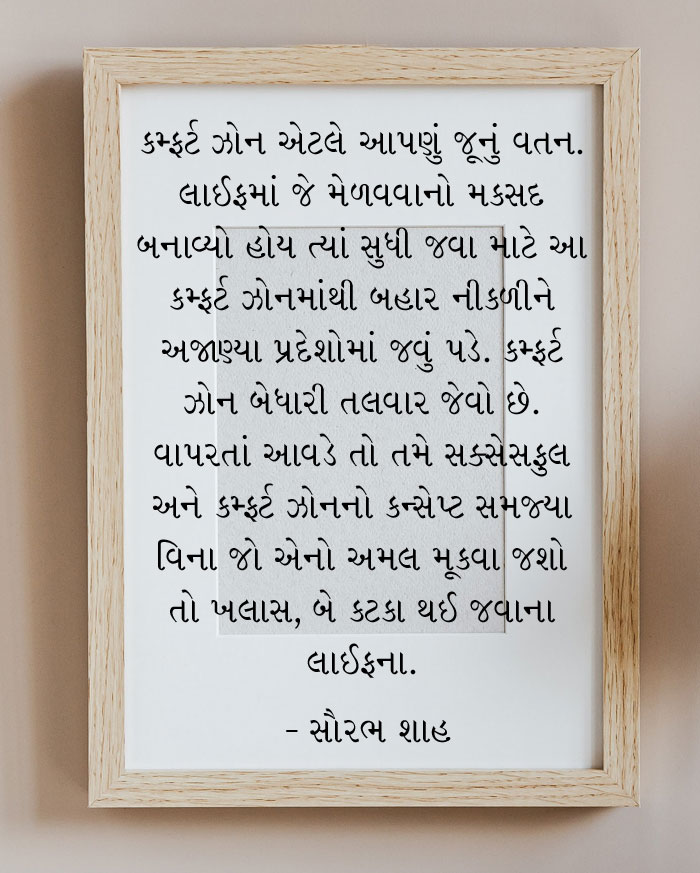 કમ્ફર્ટ ઝોન એટલે આપણું જૂનું વતન.
લાઈફમાં જે મેળવવાનો મકસદ
બનાવ્યો હોય ત્યાં સુધી જવા માટે આ
કમ્ફર્ટ ઝોનમાંથી બહાર નીકળીને
અજાણ્યા પ્રદેશોમાં જવું પડે. કમ્ફર્ટ
ઝોન બેધારી તલવાર જેવો છે.
વાપરતાં આવડે તો તમે સક્સેસફુલ
અને કમ્ફર્ટ ઝોનનો કન્સેપ્ટ સમજ્યા
વિના જો એનો અમલ મૂકવા જશો
તો ખલાસ, બે કટકા થઈ જવાના
લાઈફના.
- સૌરભ શાહ